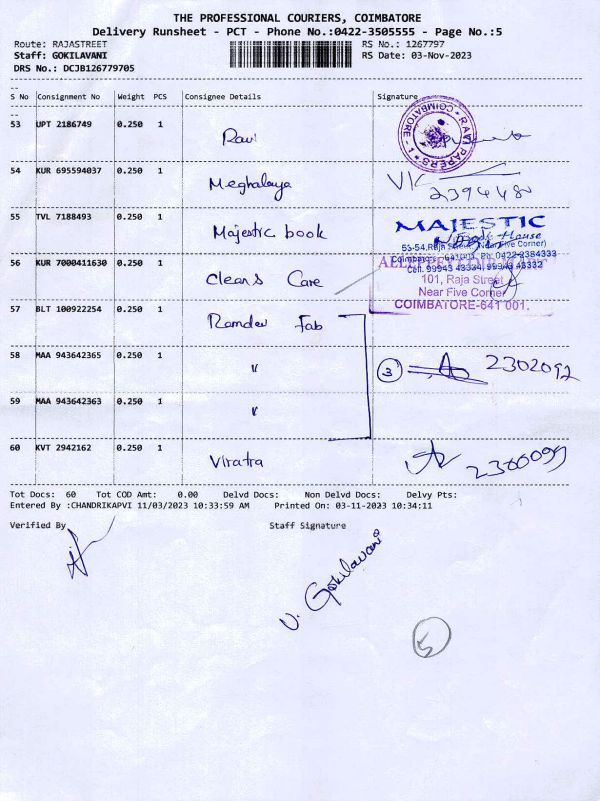 THE PROFESSIONAL COURIERS, COIMBATORE
Delivery Runsheet - PCT - Phone No.:0422-3505555 - Page No.:5
Route: RAJASTREET RS No.: 1267797
Staff: GOKILAVANI RS Date: 03-Nov-2023
DRS No.: DCJB126779705
S No Consignment No Weight PCS Consignee Details Signature
53 UPT 2186749 0.250 1 Ravi
COIMBATORE - 1 RAVI PAPERS
54 KUR 695594037 0.250 1 Meghalaya
2394480
55 TVL 7188493 0.250 1 Majestic book
MAJESTIC
Book House
53-54, Raja Street, (Near Five Corner)
Coimbatore - 641001. Ph: 0422-2384333
Cell: 99943 43334, 99943 43332
56 KUR 7000411630 0.250 1 Cleans Care
101, Raja Street
Near Five Corner
COIMBATORE-641 001.
57 BLT 100922254 0.250 1 Ramdev Fab
58 MAA 943642365 0.250 1 "
3 2302092
59 MAA 943642363 0.250 1 "
60 KVT 2942162 0.250 1 Viratra
2300099
Tot Docs: 60 Tot COD Amt: 0.00 Delvd Docs: Non Delvd Docs: Delvy Pts:
Entered By :CHANDRIKAPVI 11/03/2023 10:33:59 AM Printed On: 03-11-2023 10:34:11
Verified By Staff Signature
V. Gokilavani
5